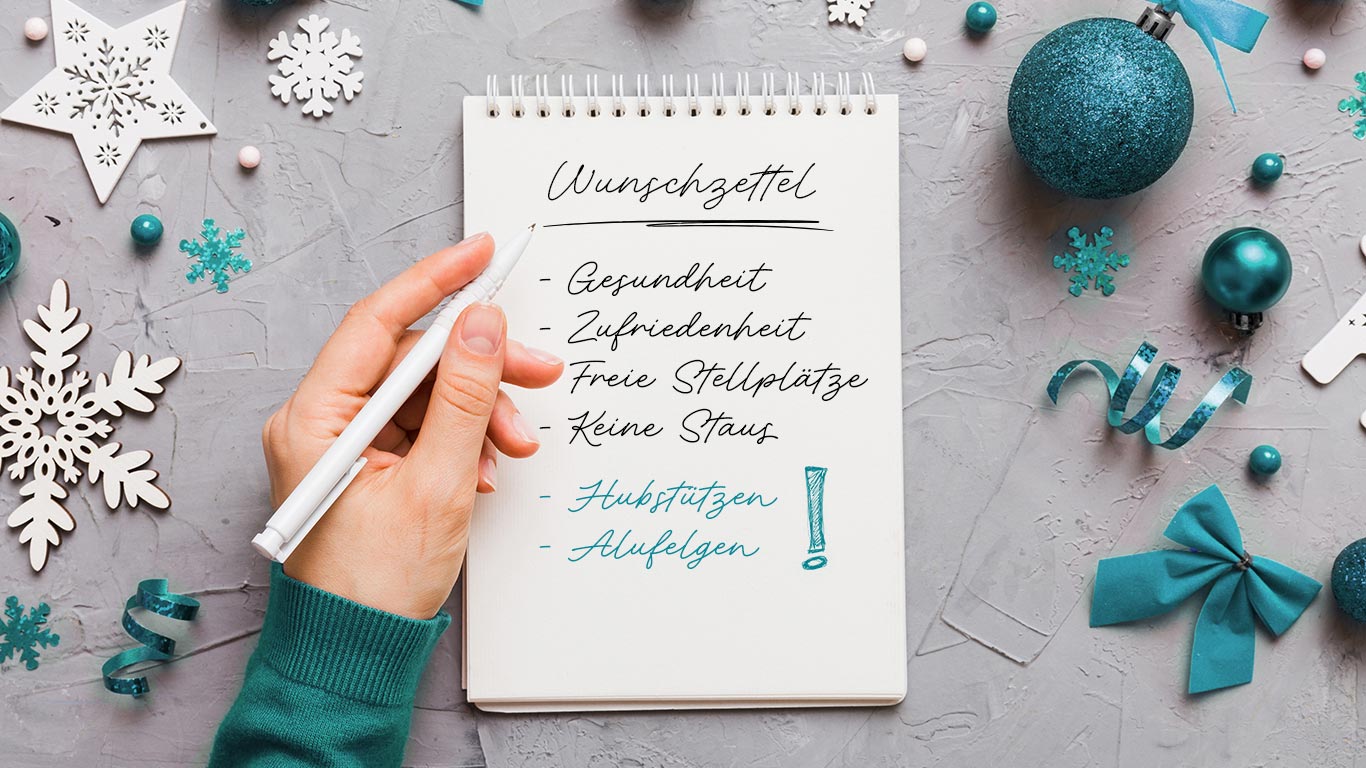 Wunschzettel
- Gesundheit
- Zufriedenheit
Freie Stellplätze
- Keine Staus
- Hubstützen
- Alufelgen
!